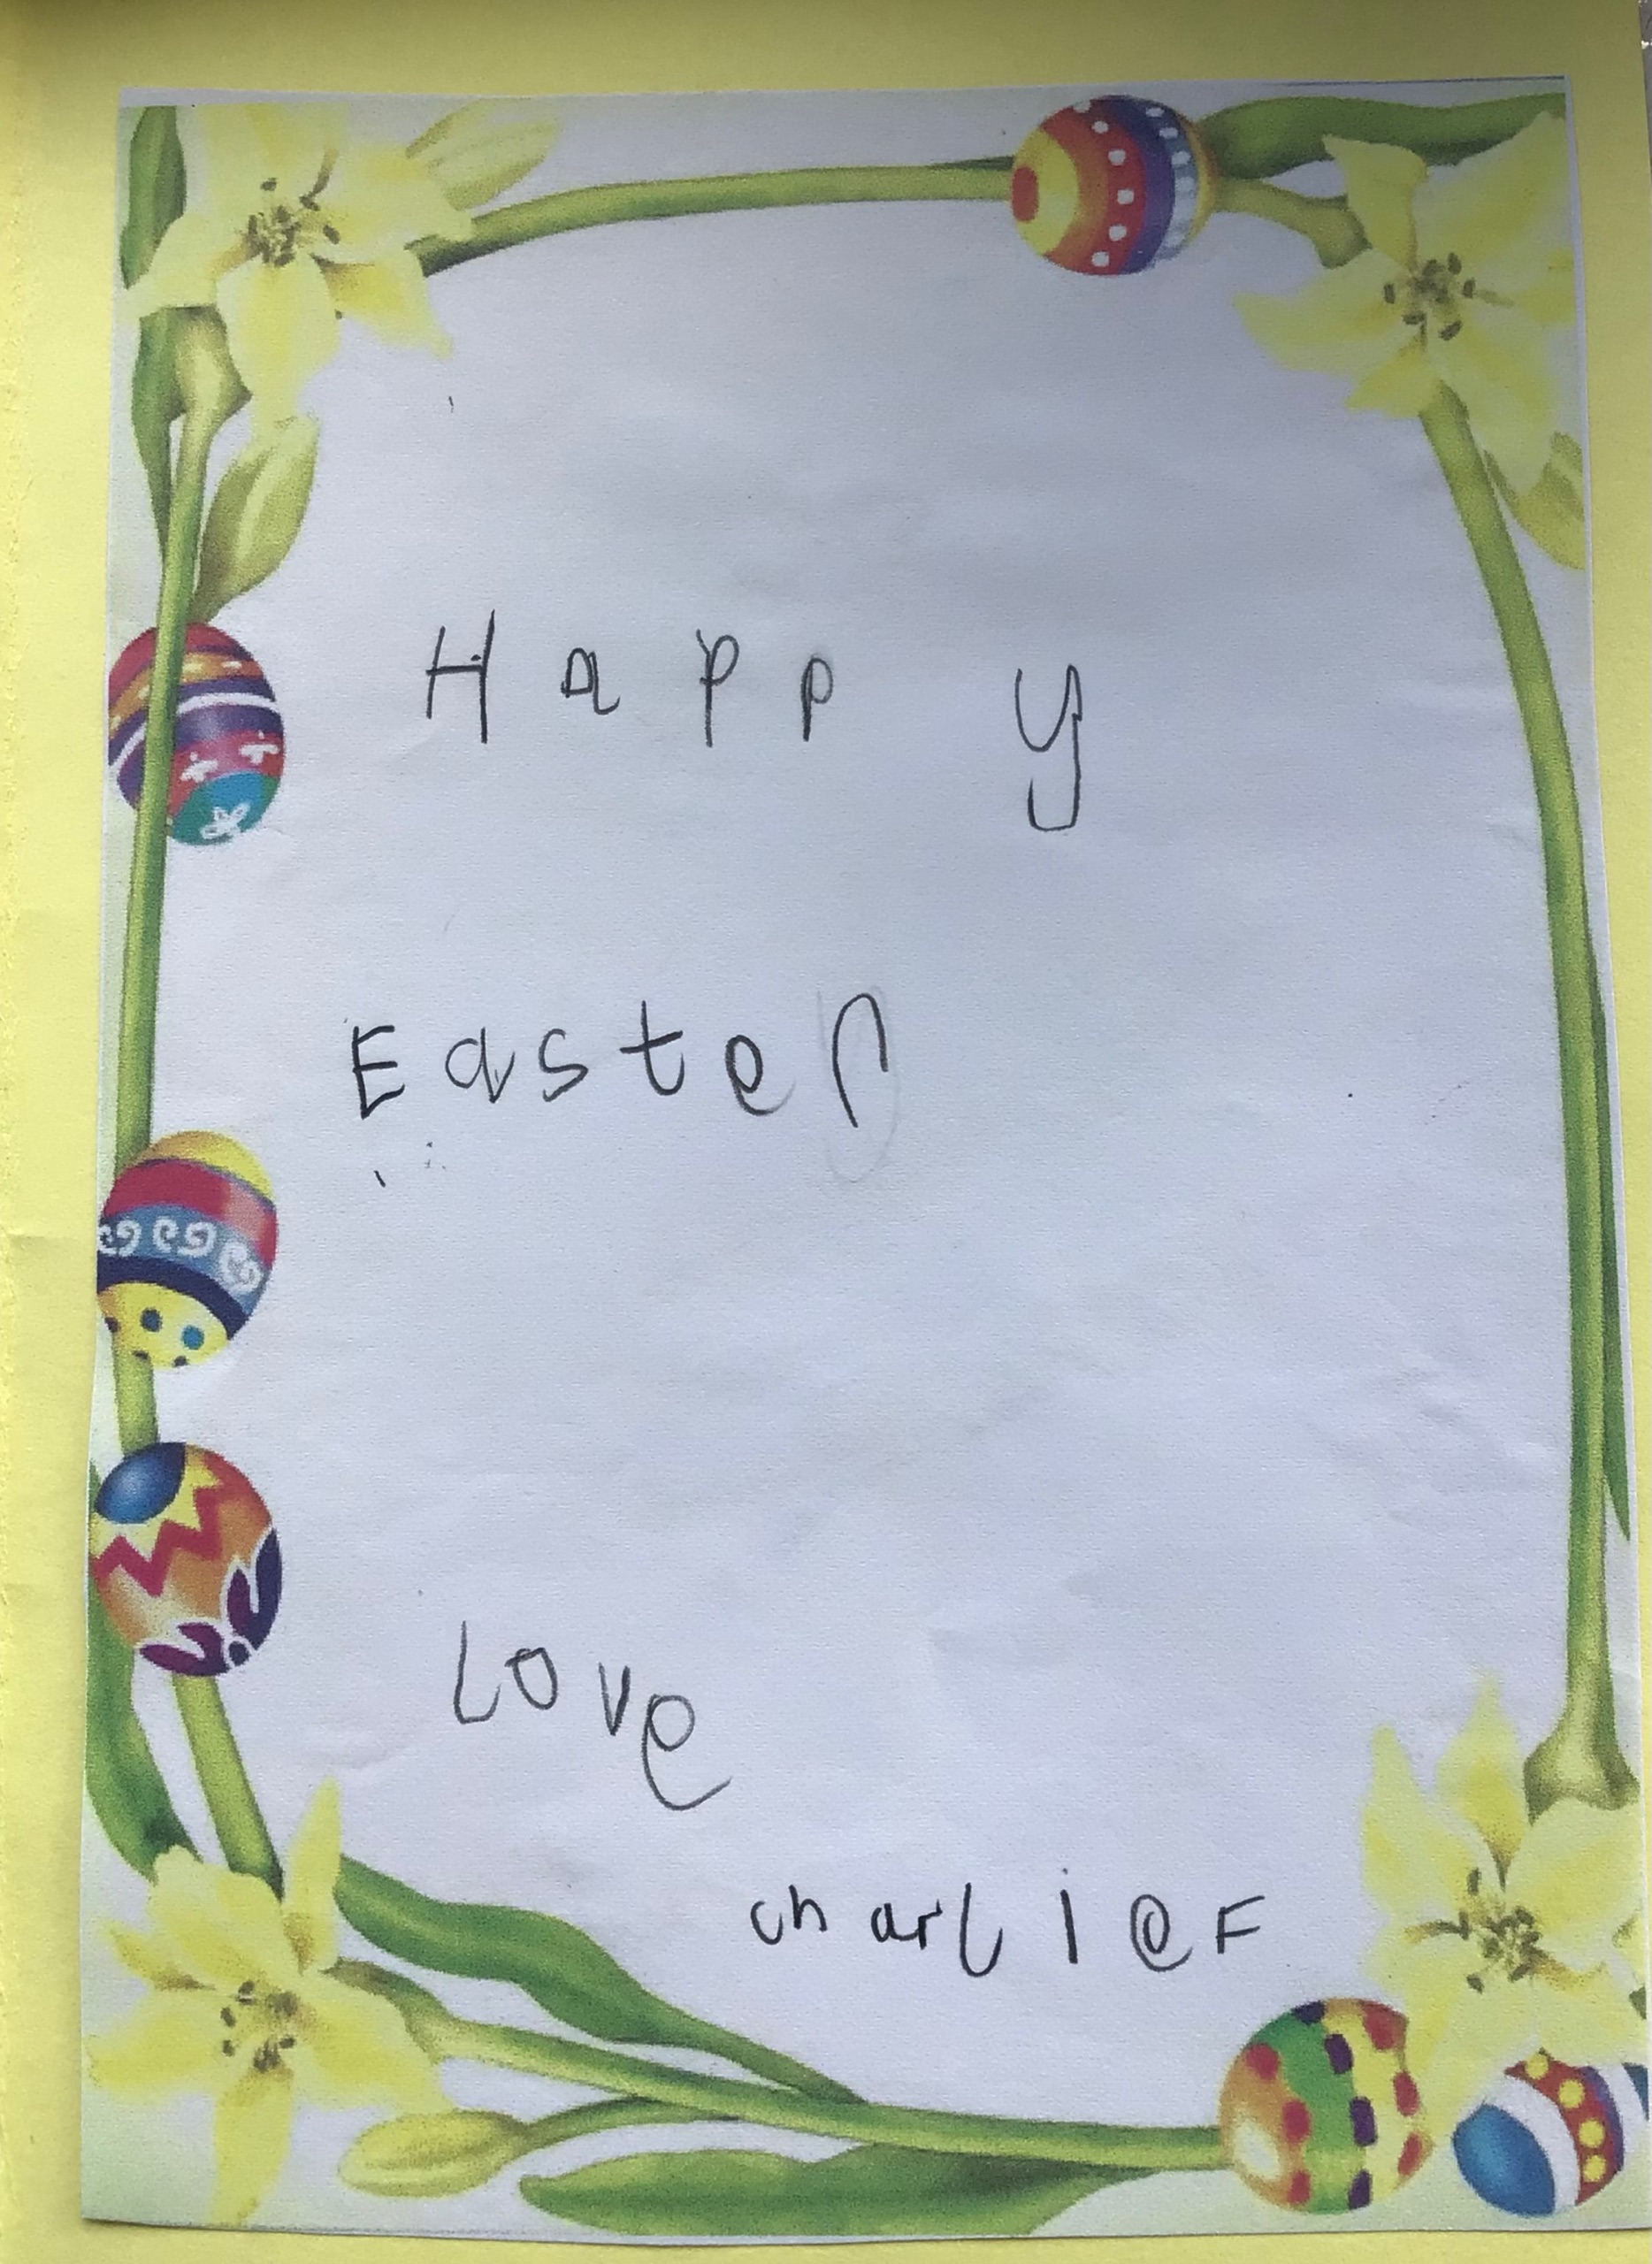 Happy
Easter
Love
charlie F